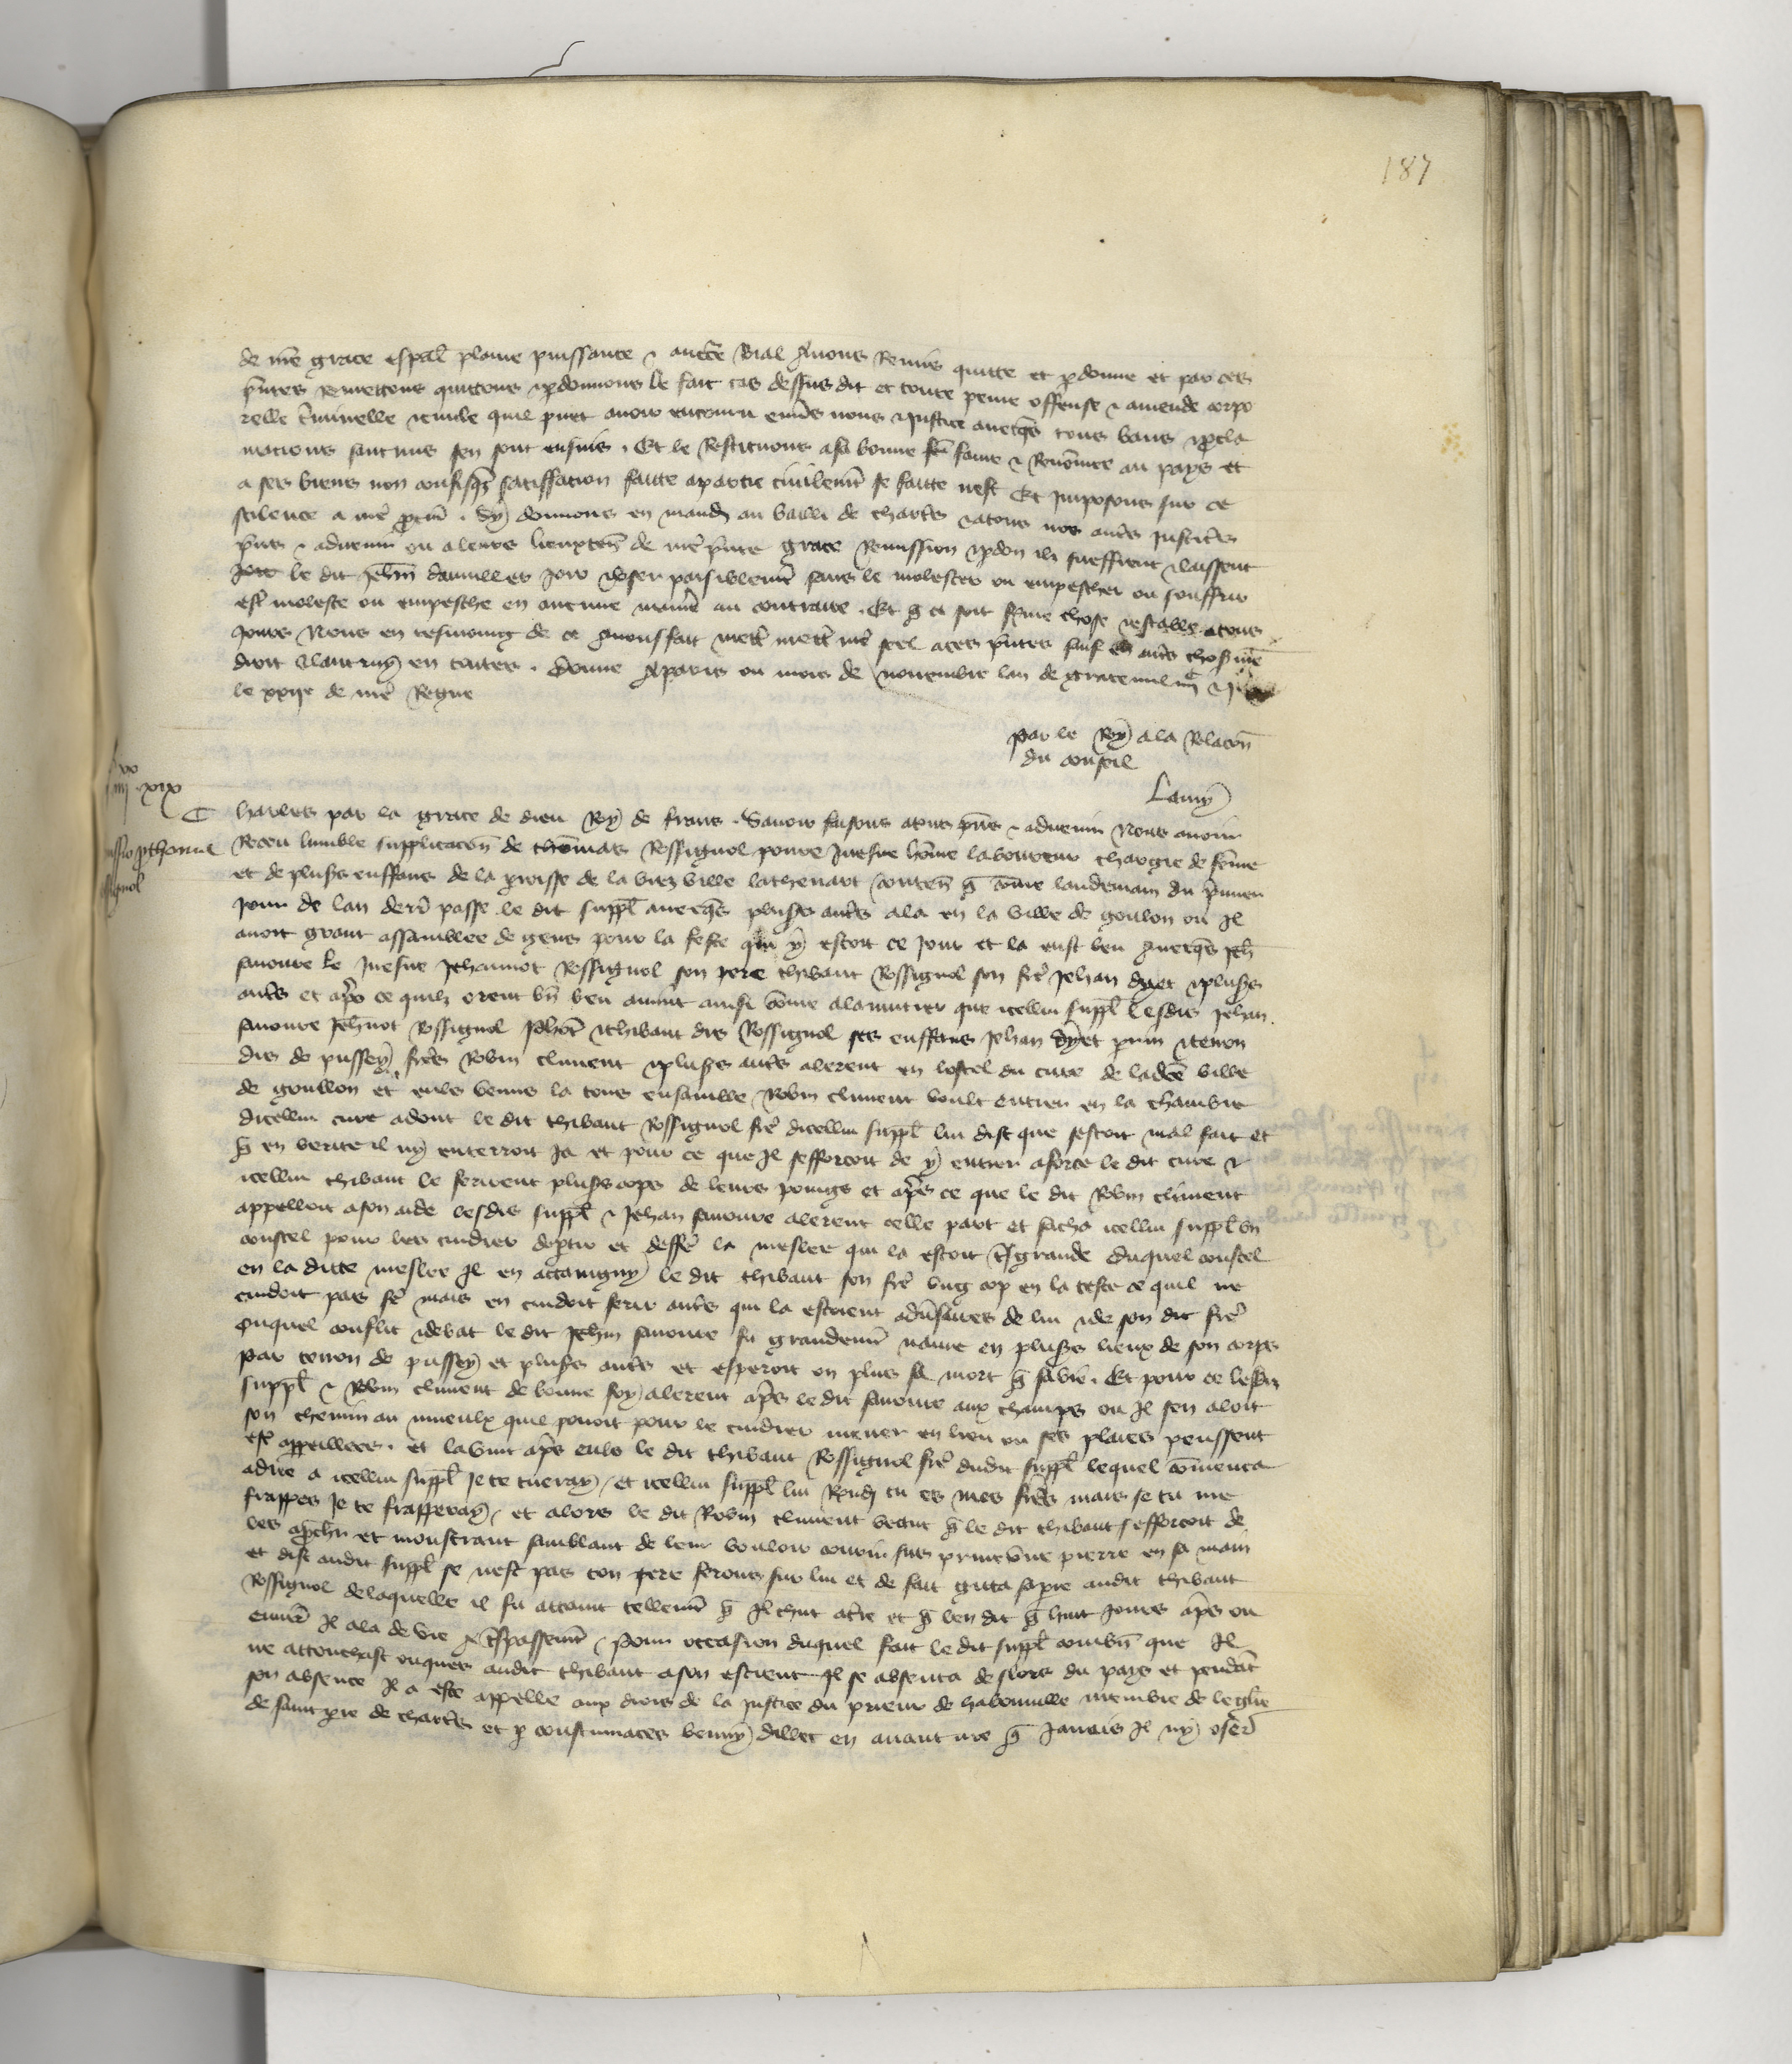 187
de nre grace espal plaine puissance & aucte Roial Avons Remis quitte et pdonne et par ces
pntes Remettons quittons & pdonnons le fait cas dessus dit et toute peine offense & amende corpo
relle criminelle & civile quil puet avoir encouru envs nous & justice avecqs tous bans & procla
macions saucuns sen sont ensuis . Et le Restituons a sa bonne fame & Renomee au pays et
a ses biens non confisqz satisfacion faitte a partie civilemt se faitte nest Et Imposons sur ce
silence a nre procur . Sy donnons en mandt au bailli de chartres & a tous nos autrs justicrs
pns & advenir ou a leurs lieuxten de nre pnte grace Remission & pdon ilz sueffrent & laissent
le dit Jehan joir & user paisiblemt sans le molester ou empescher ou souffrir
estre moleste ou empesche en aucune maniere au contraire . Et q ce soit ferme chose & estable a tous
jours Nous en tesmoing de ce Avons fait mettre nre scel a ces pntes sauf en autrs choses nre
droit & lautruy en toutes . Donne A paris ou mois de novembre lan de grace mil iiiic &
le xxiie de nre Regne
Par le Roy a la Relacon
du conseil
Lamy
xx
iiii xix
Charles par la grace de dieu Roy de france . Savoir faisons a tous pns & advenir Nous avoir
Remissio p thoma
Rossignol
Receu lumble supplicacon de thomas Rossignol povre Juesne homme laboureur chargie de feme
et de plusrs enffans de la proisse de la viez ville lathenart conten q come landemain du primier
jour de lan derr passe le dit suppl avecqs plusrs autrs ala en la ville de goulon ou Il
avoit grant assamblee de gens pour la feste qui y estoit ce jour et la eust beu Avecqs Jeh
favoure le Juesne Jehannot Rossignol son pere thibaut Rossignol son fre Jehan dyet & plusrs
autrs et apres ce quilz orent bn beu avint ainsi come a la nuitier que icellui suppl lesdis Jehan
favoure Jehnot Rossignol & thibaut dis Rossignol ses enffans Jehan dyet prin & tenon
dis de pussey freres Robin climent & plusrs autrs alerent en lostel du cure de ladce ville
de goullon et eulx venus la tous ensamble Robin climent voult entrer en la chambre
dicellui cure adont le dit thibaut Rossignol fre dicellui suppl lui dist que sestoit mal fait et
q en verite il ny enterroit Ja et pour ce que Il sefforcoit de y entrer a force le dit cure &
icellui thibaut le ferirent plusrs cops de leurs poings et apres ce que le dit Robin climent
appelloit a son aide lesdis suppl & Jehan favoure alerent celle part et sacha icellui suppl un
coustel pour les cuidier deptir et deffe la meslee qui la estoit Tsgrande Duquel coustel
en la ditte meslee Il en attaingny le dit thibaut son fre ung cop en la teste ce quil ne
cuidoit pas fe mais en cuidoit ferir autrs qui la estoient advsaires de lui & de son dit fre
ouquel conflit & debat le dit Jehan favoure fu grandemt navre en plusrs lieux de son corps
par tenon de pussey et plusrs autrs et esperoit on plus sa mort q sa vie . Et pour ce lesdis
suppl & Robin climent de bonne foy alerent apres le dit favoure aux champs ou Il sen aloit
son chemin au mieulx quil povoit pour le cuidier mener en lieu ou ses plaies peussent
estre appeillees . et la vint apres eulx le dit thibaut Rossignol fre dudit suppl lequel comenca
a dire a icellui suppl Je te tueray / et icellui suppl lui Rondi tu es mes freres mais se tu me
frappes Je te frapperay / et alors le dit Robin climent veant q le dit thibaut sefforcoit de
les aprchier et monstrant samblant de leur vouloir courir sus print une pierre en sa main
et dist audit suppl se nest pas ton pere ferons sur lui et de fait gitta sa pre audit thibaut
Rossignol de laquelle il fu attaint tellemt q Il chut a tre et q len dit q huit jours apres ou
environ Il ala de vie a Tspassemt . Pour occasion duquel fait le dit suppl combn que Il
ne attouchast onques audit thibaut a son escient Il se absenta deslors du pays et pendat
son absence Il a este appelle aux drois de la justice du prieur de habonville membre de leglise
de saint pre de chartrs et p coustumaces banny dillec en avant ure q Jamais Il ny osero